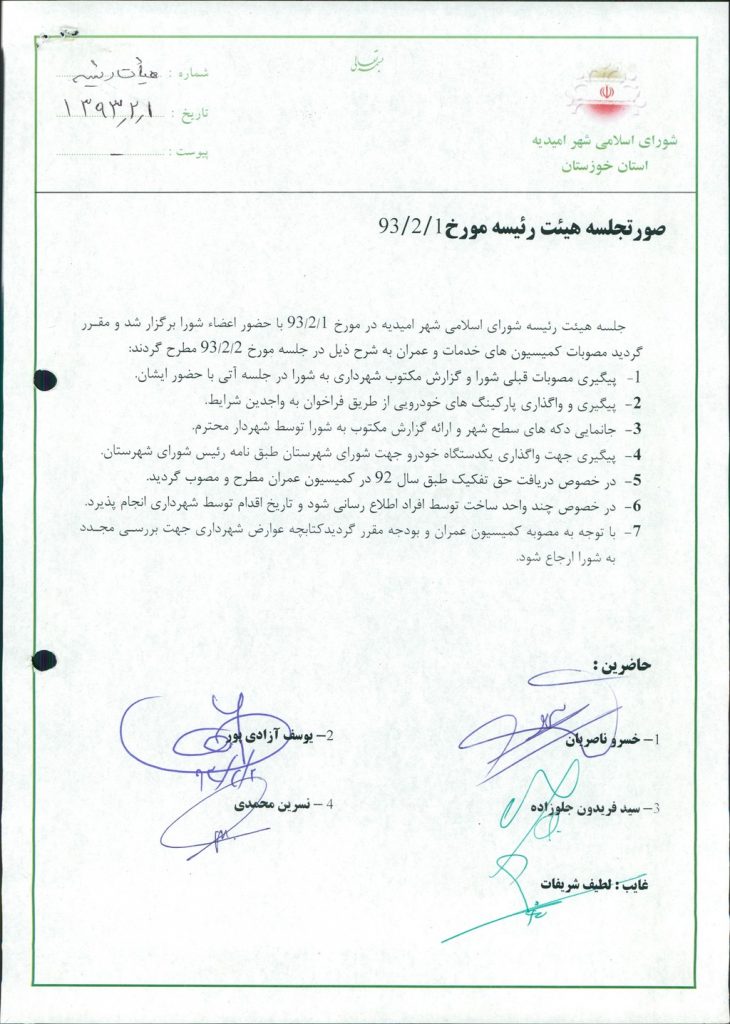 بسمه تعالی
شماره : هیأت رئیسه
تاریخ : ۱۳۹۳٫۲٫۱
پیوست : –
شورای اسلامی شهر امیدیه
استان خوزستان
صورتجلسه هیئت رئیسه مورخ93/2/1
جلسه هیئت رئیسه شورای اسلامی شهر امیدیه در مورخ 93/2/1 با حضور اعضاء شورا برگزار شد و مقـرر
گردید مصوبات کمیسیون های خدمات و عمران به شرح ذیل در جلسه مورخ 93/2/2 مطرح گردند:
1- پیگیری مصوبات قبلی شورا و گزارش مکتوب شهرداری به شورا در جلسه آتی با حضور ایشان.
2- پیگیری و واگذاری پارکینگ های خودرویی از طریق فراخوان به واجدین شرایط.
3- جانمایی دکه های سطح شهر و ارائه گزارش مکتوب به شورا توسط شهردار محترم.
4- پیگیری جهت واگذاری یکدستگاه خودرو جهت شورای شهرستان طبق نامه رئیس شورای شهرستان.
5- در خصوص دریافت حق تفکیک طبق سال 92 در کمیسیون عمران مطرح و مصوب گردید.
6- در خصوص چند واحد ساخت توسط افراد اطلاع رسانی شود و تاریخ اقدام توسط شهرداری انجام پذیرد.
7- با توجه به مصوبه کمیسیون عمران و بودجه مقرر گردیدکتابچه عوارض شهرداری جهت بررسـی مجـدد
به شورا ارجاع شود.
حاضرین :
1– خسرو ناصریان
2– یوسف آزادی پور
۹۳/۲/۲
3– سید فریدون جلوزاده
4 – نسرین محمدی
غایب : لطیف شریفات